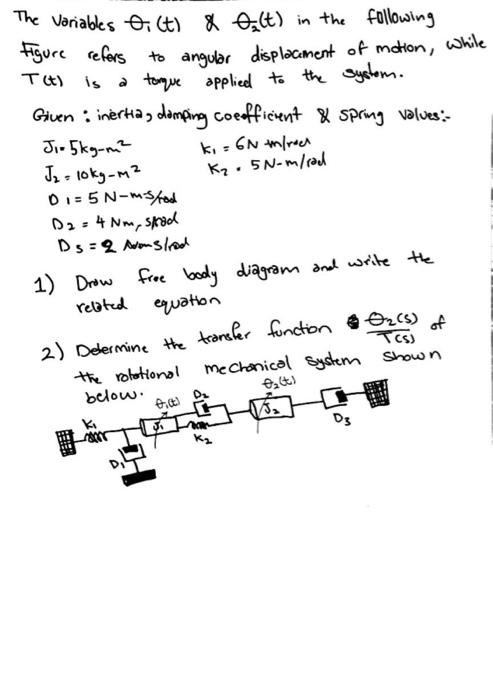 The Variables θ₁(t) & θ₂(t) in the following
figure refers to angular displacement of motion, while
T(t) is a torque applied to the system.
Given : inertia, damping coefficient & spring values:-
J₁= 5kg-m² K₁ = 6N m/rad
J₂ = 10kg-m² K₂ = 5N-m/rad
D1 = 5 N-m-s/rad
D₂ = 4 Nm, s/rad
D₃ = 2 s/rad
1) Draw free body diagram and write the
related equation
2) Determine the transfer function θ₂(s)/T(s) of
the rotational mechanical system shown
below.
θ₂(t)
θ₁(t) D₂
K₁ J₁ J₂
K₂ D₃
D₁